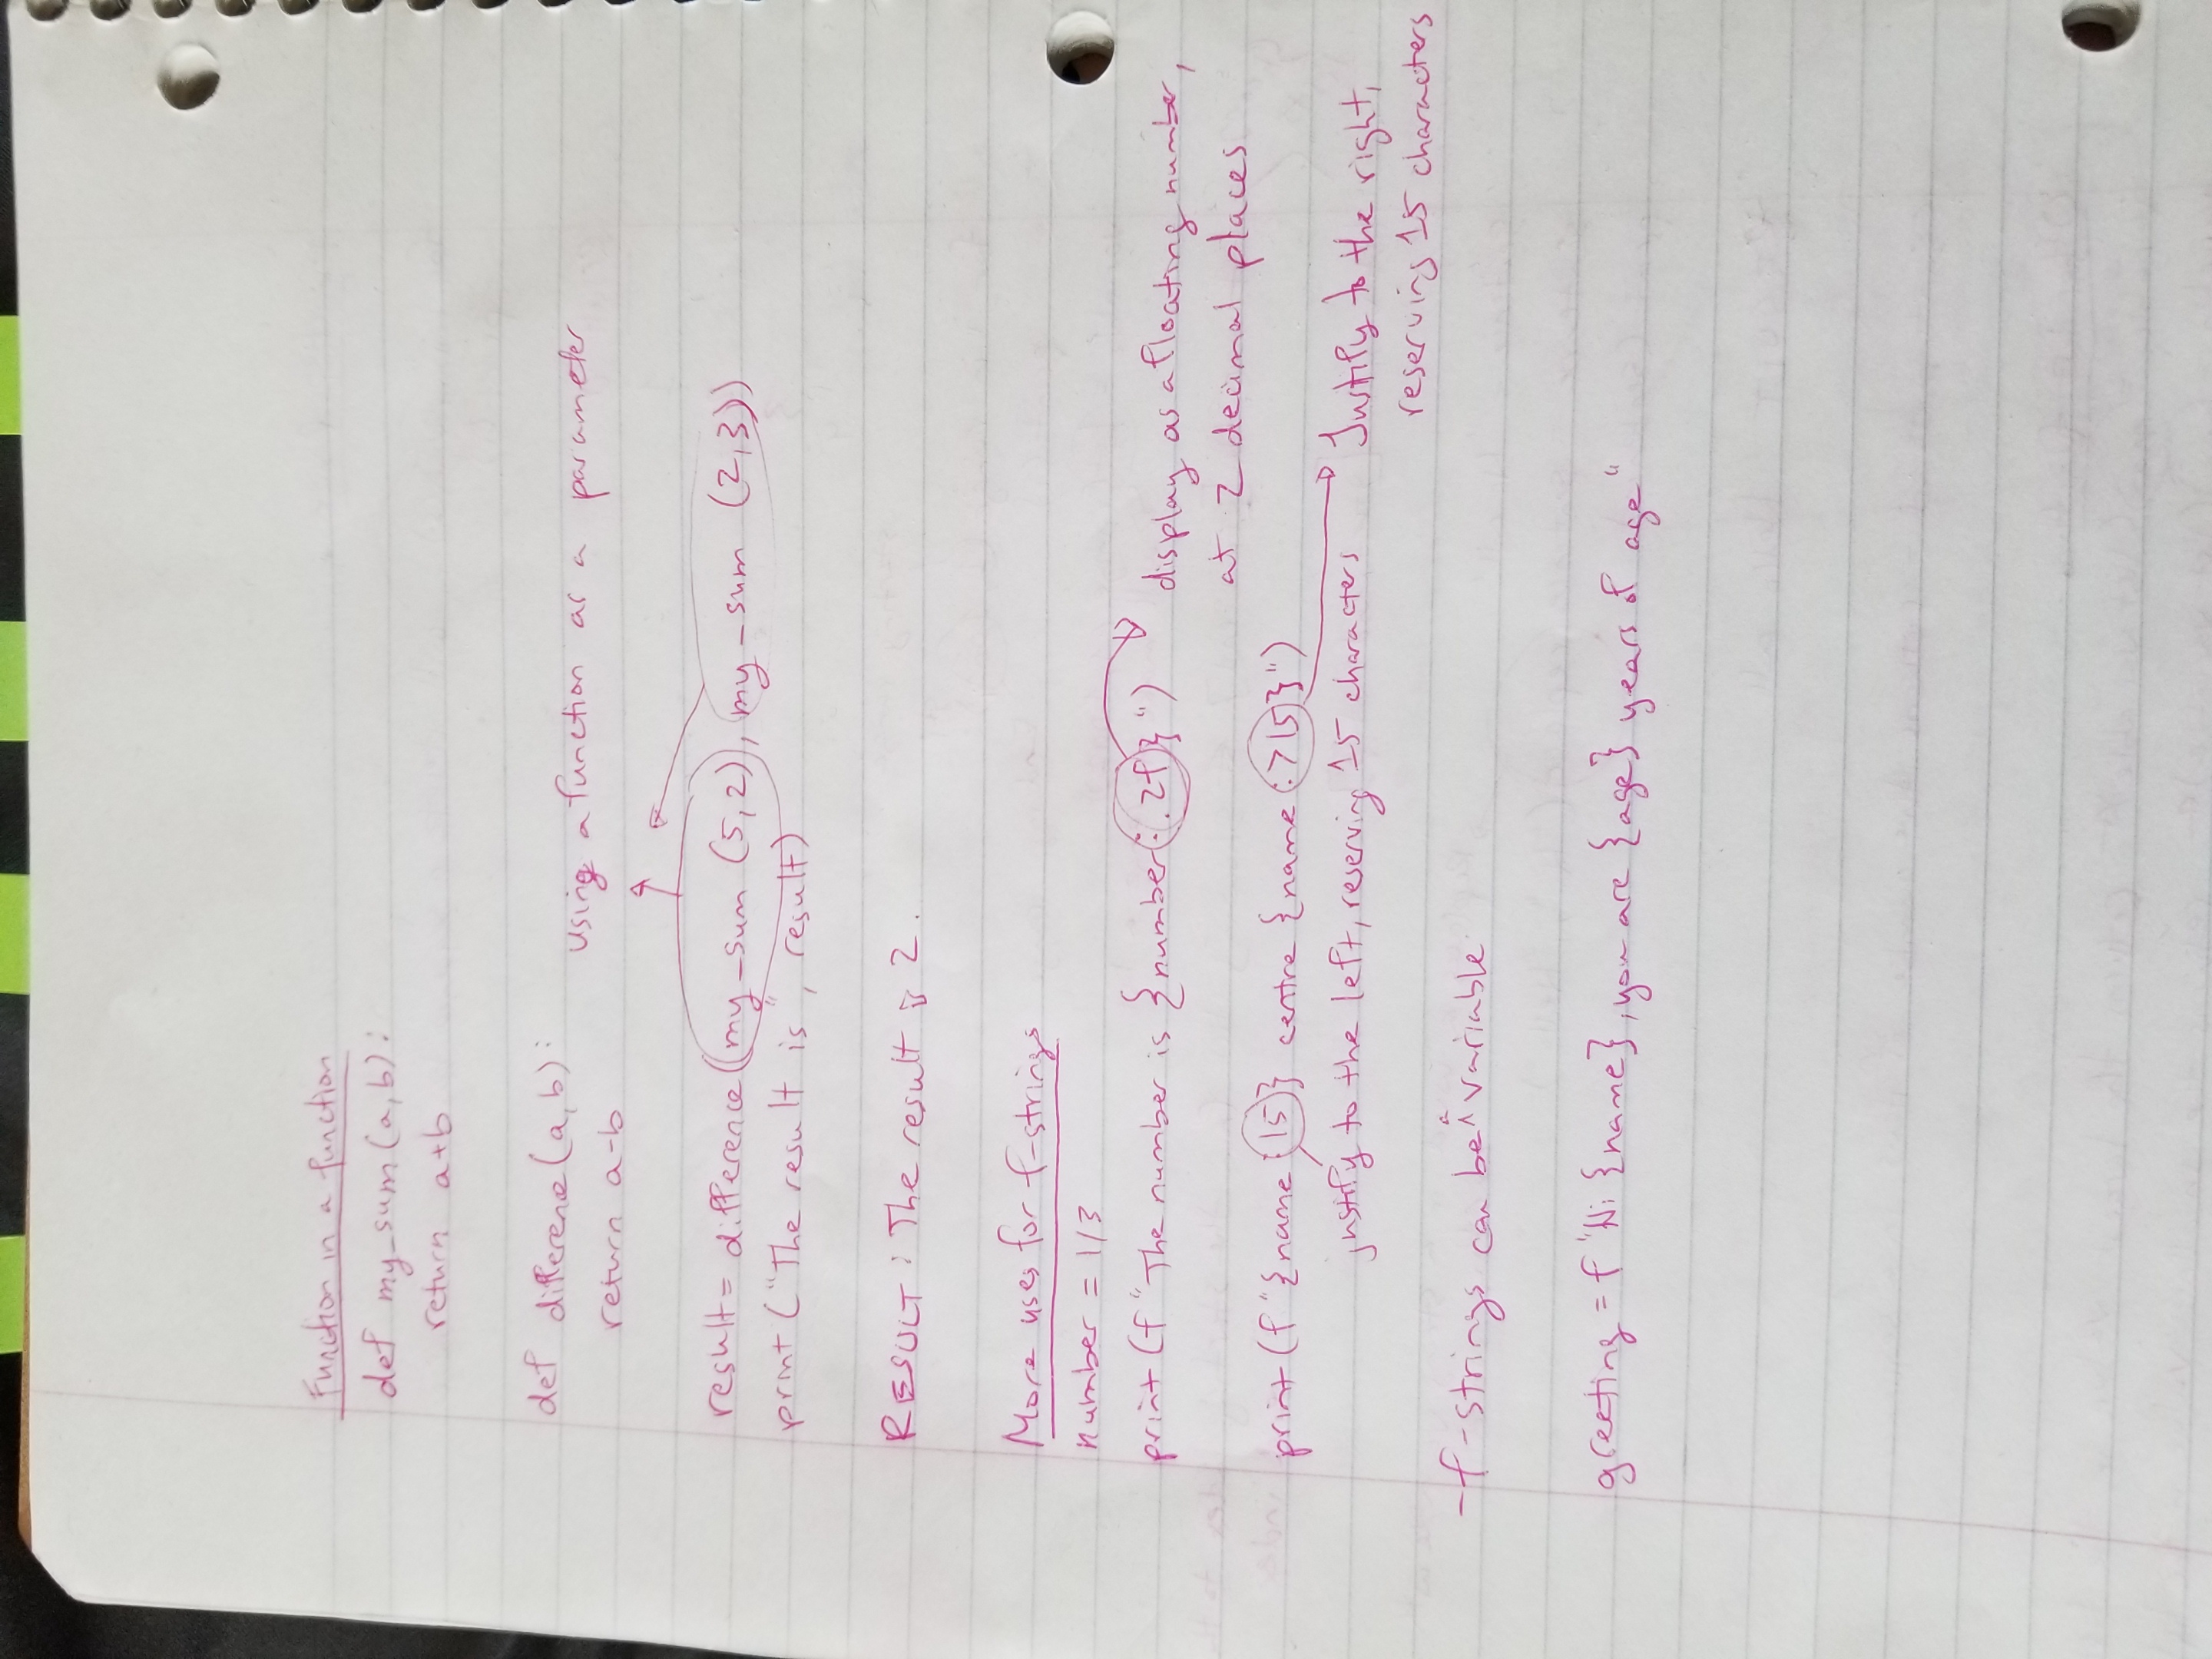 Function in a function
def my_sum (a,b):
return a+b
def difference (a,b):
return a-b
using a function as a parameter
result = difference (my_sum (5,2), my_sum (2,3))
print ("The result is", result)
RESULT: The result is 2.
More uses for f-strings
number = 1/3
print (f "The number is {number:.2f}")
display as a floating number,
at 2 decimal places
print (f "{name:15} centre {name:>15}")
justify to the left, reserving 15 characters
Justify to the right,
reserving 15 characters
-f-strings can be a variable
greeting = f "Hi {name}, you are {age} years of age"